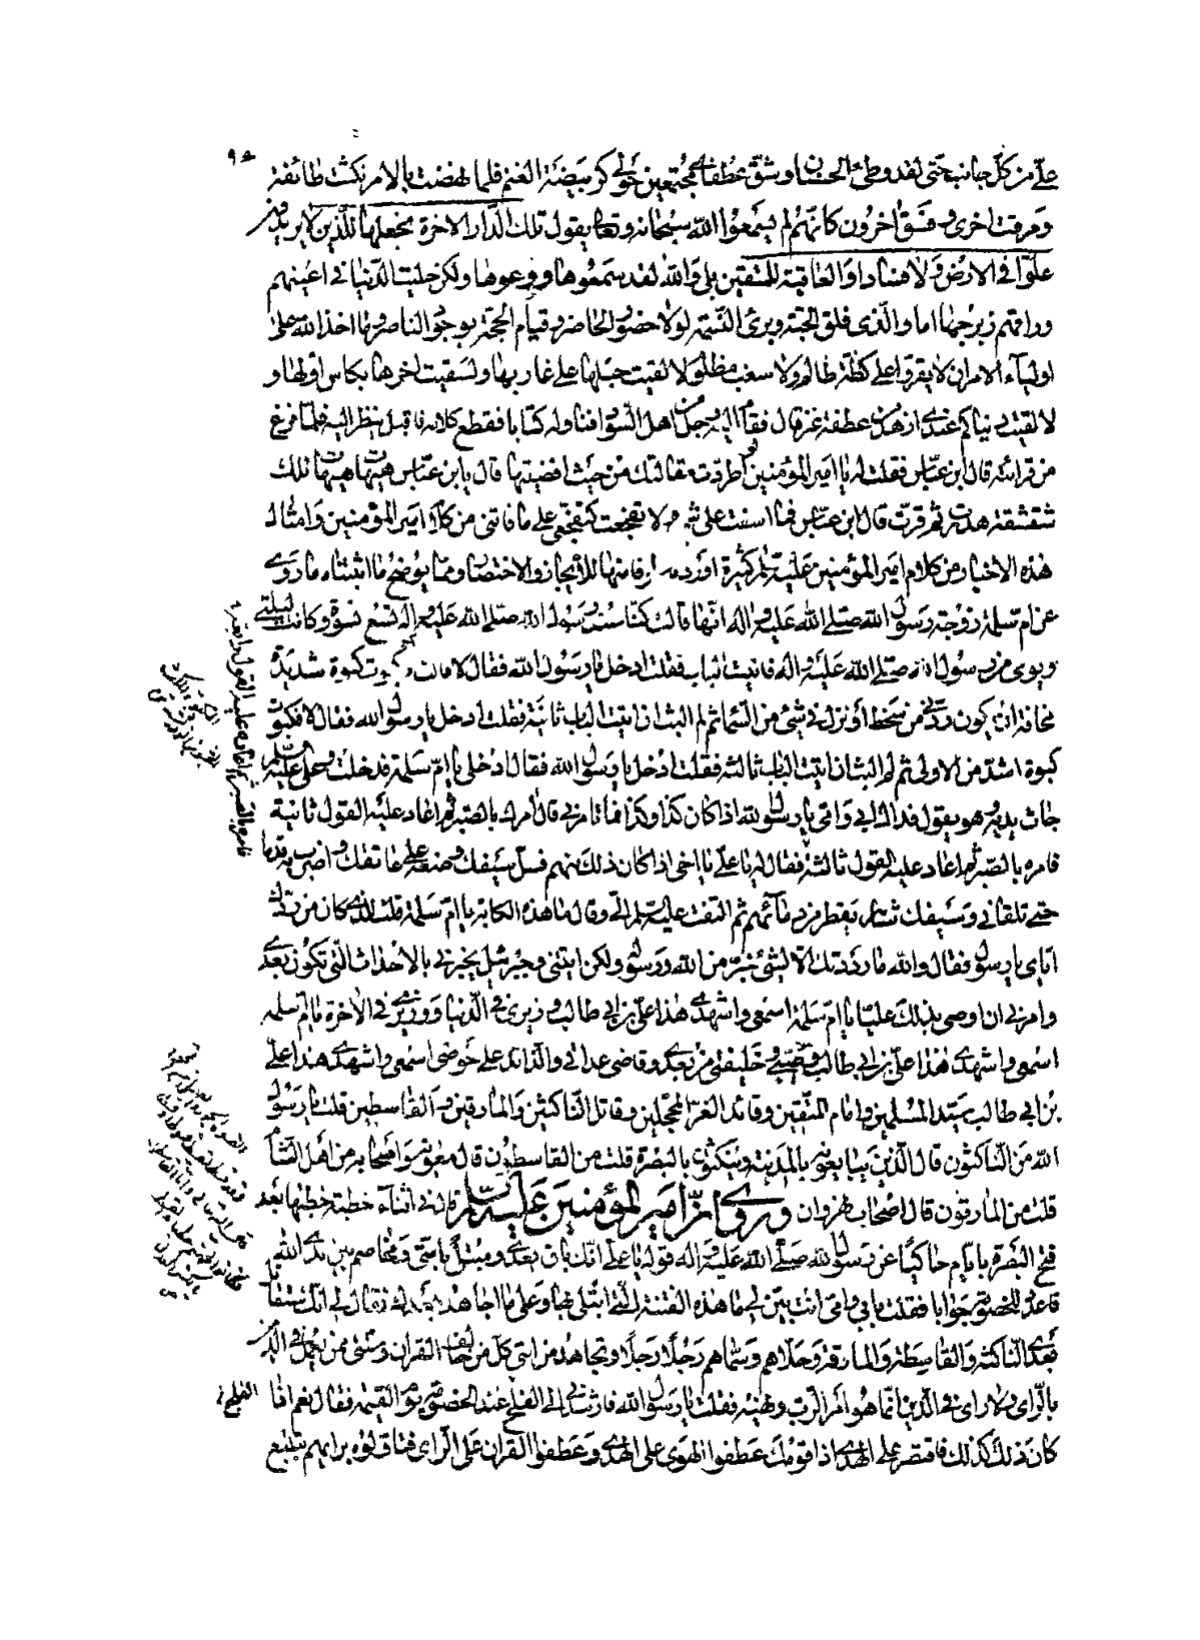 ٩٥
علىّ من كل جانب حتى لقد وطئ الحسنان وشق عطفاى مجتمعين حولى كربيضة الغنم فلما نهضت بالامر نكثت طائفة
ومرقت اخرى وفسق اخرون كانهم لم يسمعوا الله سبحانه وتعا يقول تلك الدار الاخرة نجعلها للذين لا يريدون
علوا فى الارض ولا فسادا والعاقبة للمتقين بلى والله لقد سمعوها ووعوها ولكن حليت الدنيا فى اعينهم
وراقهم زبرجها اما والذى فلق الحبة وبرئ النسمة لولا حضور الحاضر وقيام الحجة بوجود الناصر وما اخذ الله على
اولياء الامر ان لا يقروا على كظة ظالم ولا سغب مظلوم لالقيت حبلها على غاربها ولسقيت اخرها بكاس اولها و
لالفيت دنياكم عندى ازهد من عطفة عنز قال فقام اليه رجل من اهل السواد فناوله كتابا فقطع كلامه فاقبل ينظر اليه فلما فرغ
من قرائته قال ابن عباس فقلت له يا امير المؤمنين لو اطردت مقالتك من حيث افضيتها قال يابن عباس هيهات هيهات تلك
شقشقة هدرت ثم قرت قال ابن عباس فما اسفت على شئ ولا تفجعت كتفجعى على ما فاتنى من كلام امير المؤمنين وامثال
هذه الاخبار من كلام امير المؤمنين عليه السلم كثيرة اوردت طرفا منها للايجاز والاختصار ومما يوضح ما اثبتناه ما روى
عن ام سلمة زوجة رسول الله صلى الله عليه واله انها قالت كنا عند رسول الله صلى الله عليه واله تسع نسوة وكانت ليلتى
ويومى من رسول الله صلى الله عليه واله فاتيت الباب فقلت ادخل يا رسول الله فقال لا قالت فكبوت كبوة شديدة
مخافة ان يكون ردنى من سخط او نزل فى شئ من السماء ثم لم البث ان اتيت الباب ثانية فقلت ادخل يا رسول الله فقال لا فكبوت
كبوة اشد من الاولى ثم لم البث ان اتيت الباب ثالثة فقلت ادخل يا رسول الله فقال ادخلى يا ام سلمة فدخلت وعلى عليه السلم
جاث بين يديه وهو يقول فداك ابى وامى يا رسول الله اذا كان كذا وكذا فما تامرنى قال امرك بالصبر ثم اعاد عليه القول ثانية
فامره بالصبر ثم اعاد عليه القول ثالثة فقال له يا على يا اخى اذا كان ذلك منهم فسل سيفك وضعه على عاتقك واضرب به قدما
حتى تلقانى وسيفك شاهر يقطر من دمائهم ثم التفت عليه السلم الى وقال ما هذه الكابة يا ام سلمة قلت للذى كان من ردك
اياى يا رسول الله فقال والله ما رددتك الا لشئ خير من الله ورسوله ولكن اتيتنى وجبرئيل يخبرنى بالاحداث التى تكون بعدى
وامرنى ان اوصى بذلك عليا يا ام سلمة اسمعى واشهدى هذا على بن ابى طالب وزيرى فى الدنيا ووزيرى فى الاخرة يا ام سلمه
اسمعى واشهدى هذا على بن ابى طالب وصيى وخليفتى من بعدى وقاضى عداتى والذائد على حوضى اسمعى واشهدى هذا على
بن ابى طالب سيد المسلمين وامام المتقين وقائد الغر المحجلين وقاتل الناكثين والمارقين والقاسطين قلت يا رسول
الله من الناكثون قال الذين يبايعونه بالمدينة وينكثون بالبصرة قلت من القاسطون قال معوية واصحابه من اهل الشام
قلت من المارقون قال اصحاب نهروان وروى ان امير المؤمنين عليه السلم قال فى اثناء خطبة خطبها بعد
فتح البصرة بايام حاكيا عن رسول الله صلى الله عليه واله قوله يا على انك باق بعدى ومبتلى بامتى ومخاصم بين يدى الله
فاعد للخصومة جوابا فقلت بابى وامى انت بين لى ما هذه الفتنة التى ابتلى بها وعلى ما اجاهد بعدك فقال لى انك ستقاتل
بعدى الناكثة والقاسطة والمارقة وحلاهم وسماهم رجلا رجلا وتجاهد من امتى كل من خالف القران وسنتى ممن يعمل فى الدين
بالراى ولا راى فى الدين انما هو امر الرب ونهيه فقلت يا رسول الله فارشدنى الى الفلج عند الخصومة يوم القيمة فقال نعم اذا
كان ذلك كذلك فاقتصر على الهدى اذا قومك عطفوا الهوى على الهدى وعطفوا القران على الراى فتاولوه برايهم بتتبع